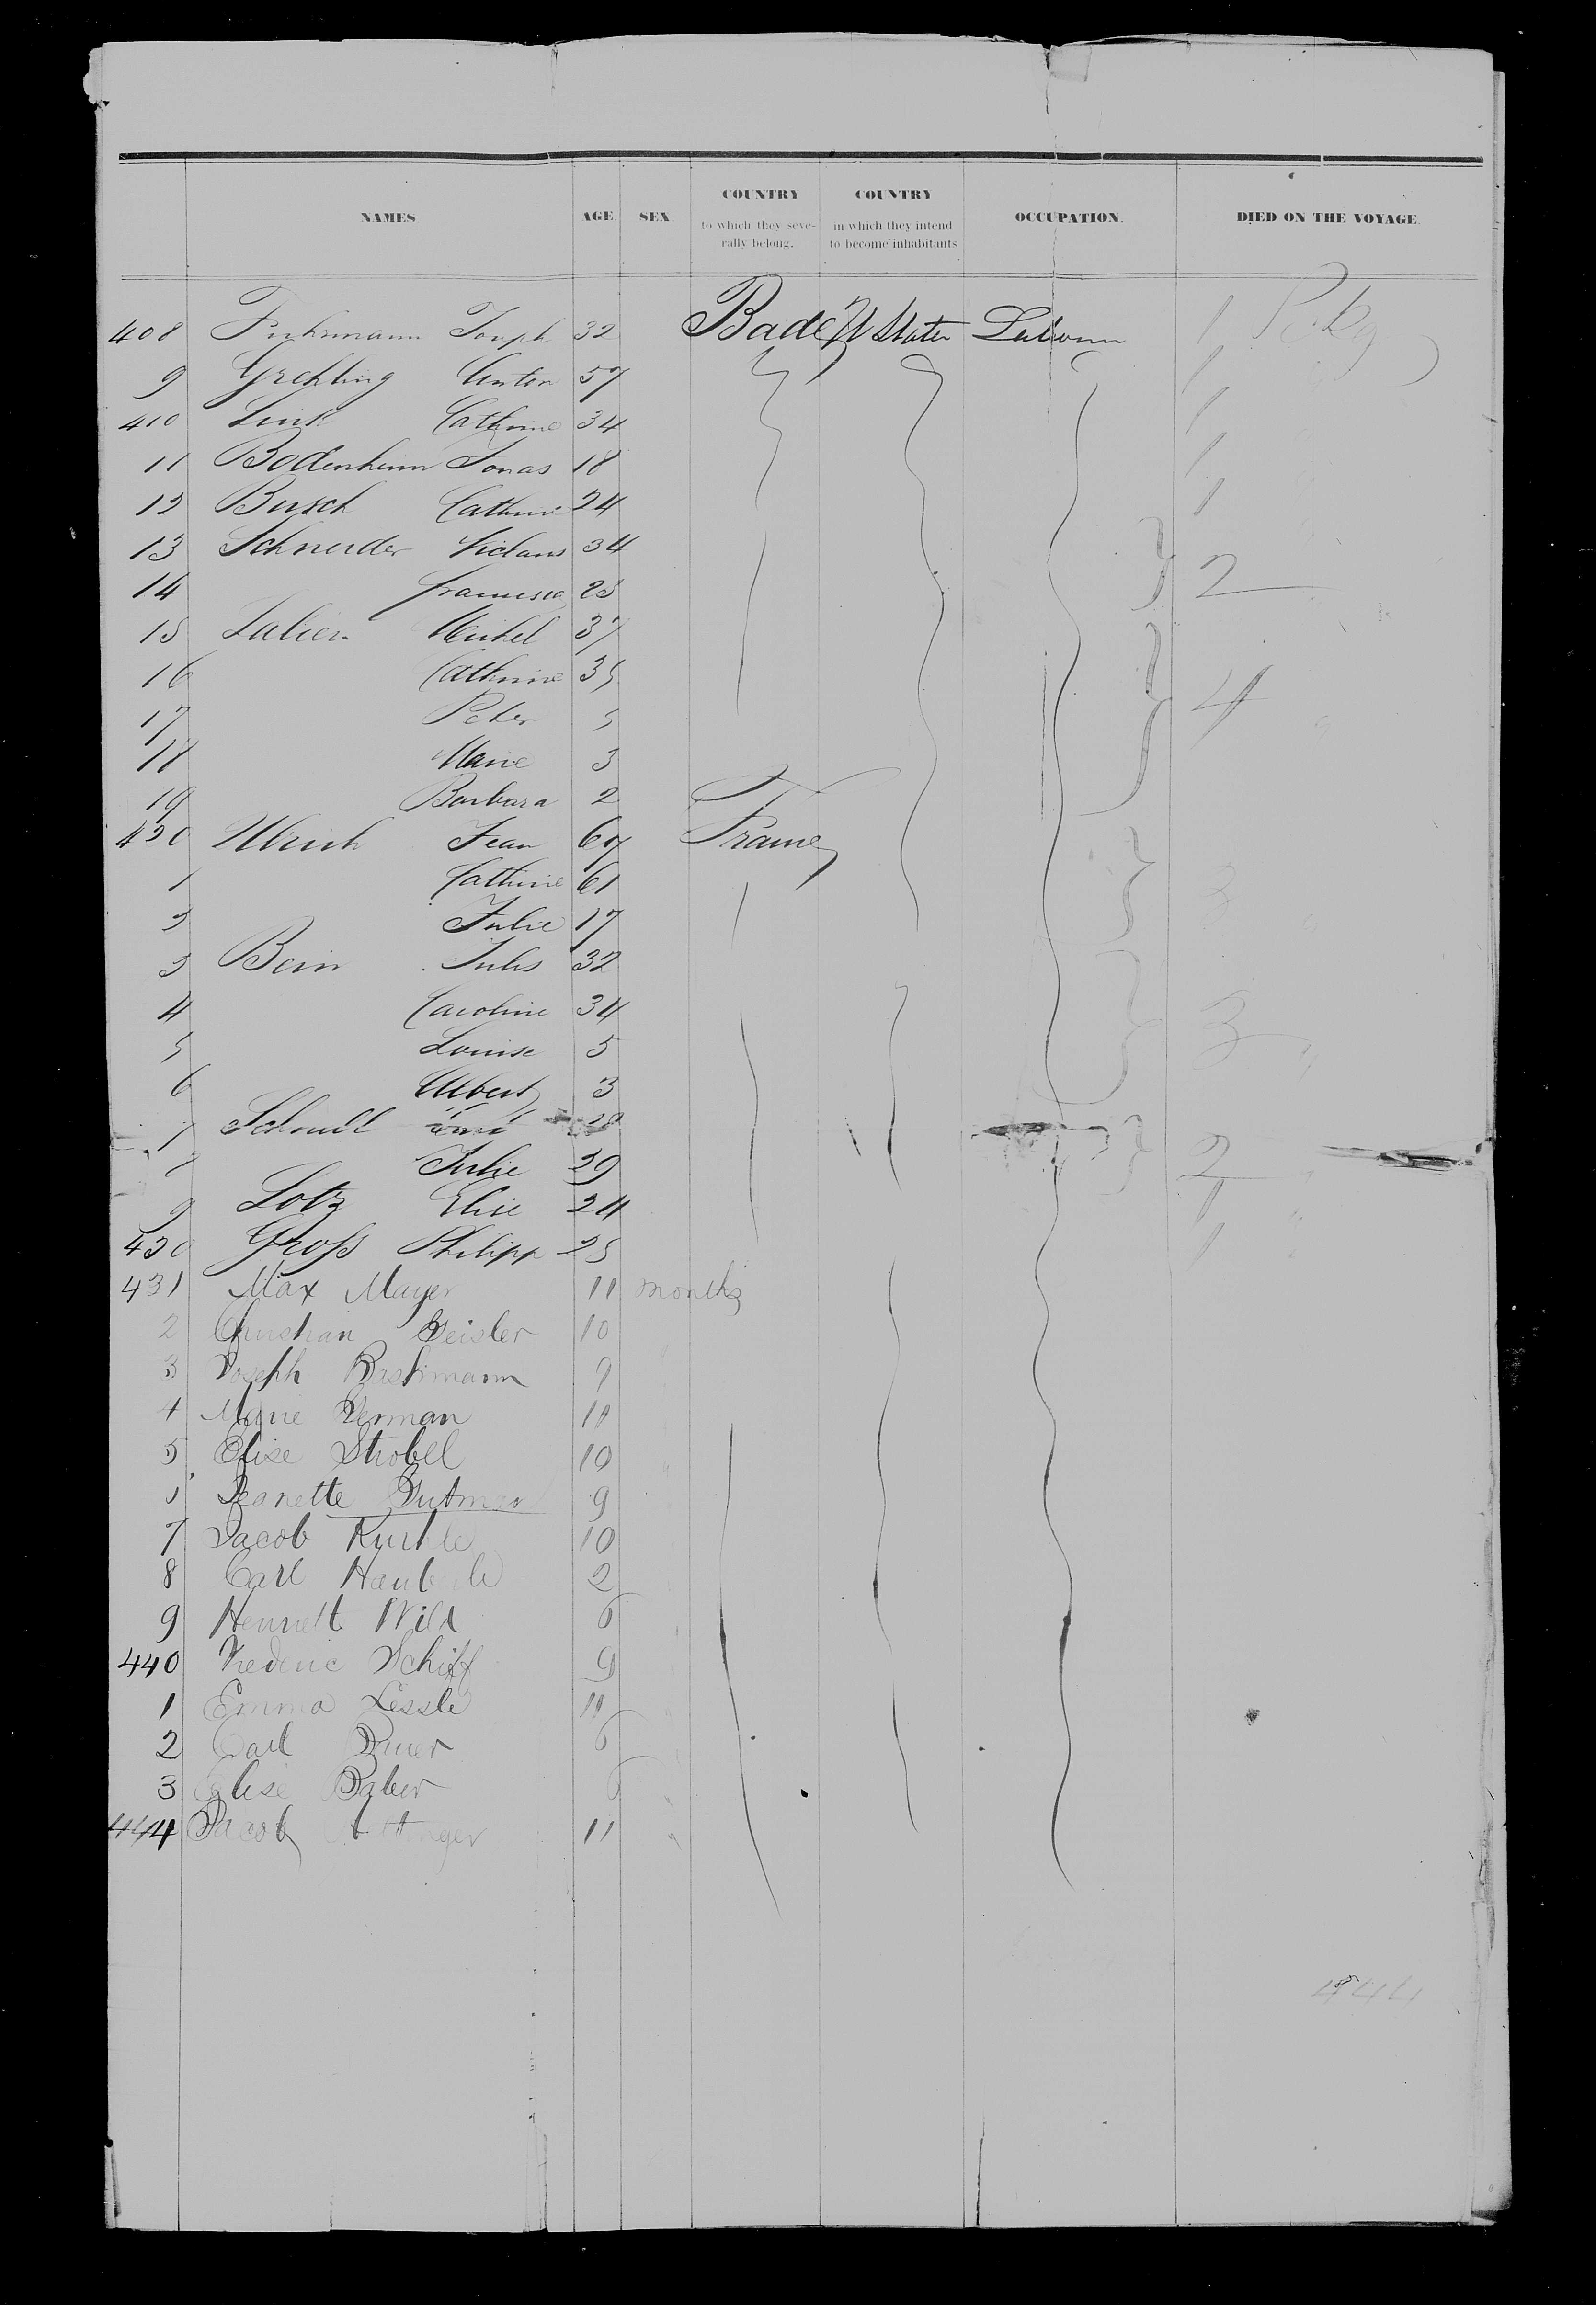 NAMES AGE. SEX. COUNTRY to which they severally belong. COUNTRY in which they intend to become inhabitants OCCUPATION. DIED ON THE VOYAGE.
408 Fuhrmann Joseph 32 Baden U States Labourer 1 Pckg
9 Grehling Anton 57 1
410 Link Catherine 34 1
11 Bodenheim Jonas 18 1
12 Busch Cathrin 24 1
13 Schneider 34 2
14 Francisca 25
15 Michel 37
16 Catherine 35 4
17 Peter 5
18 Marie 3
19 Barbara 2
420 Ulrich Jean 67 France
1 Catherine 61 3
2 Julie 17
3 Bein Jules 32
4 Caroline 34 3
5 Louise 5
6 Albert 3
7 28
Julie 29 2
9 Lotz Elise 24 1
430 Groß Philipp 25 1
431 Max Mayer 11 months
2 Christian Geisler 10
3 Joseph 9
4 Marie German 11
5 Elise Strobel 10
Jeanette Gutman 9
7 Jacob 10
8 Carl 2
9 Wild 6
440 Frederic Schiff 9
1 Emma Lessle 11
2 Carl 6
3 Elise 6
444 Jacob 11
444